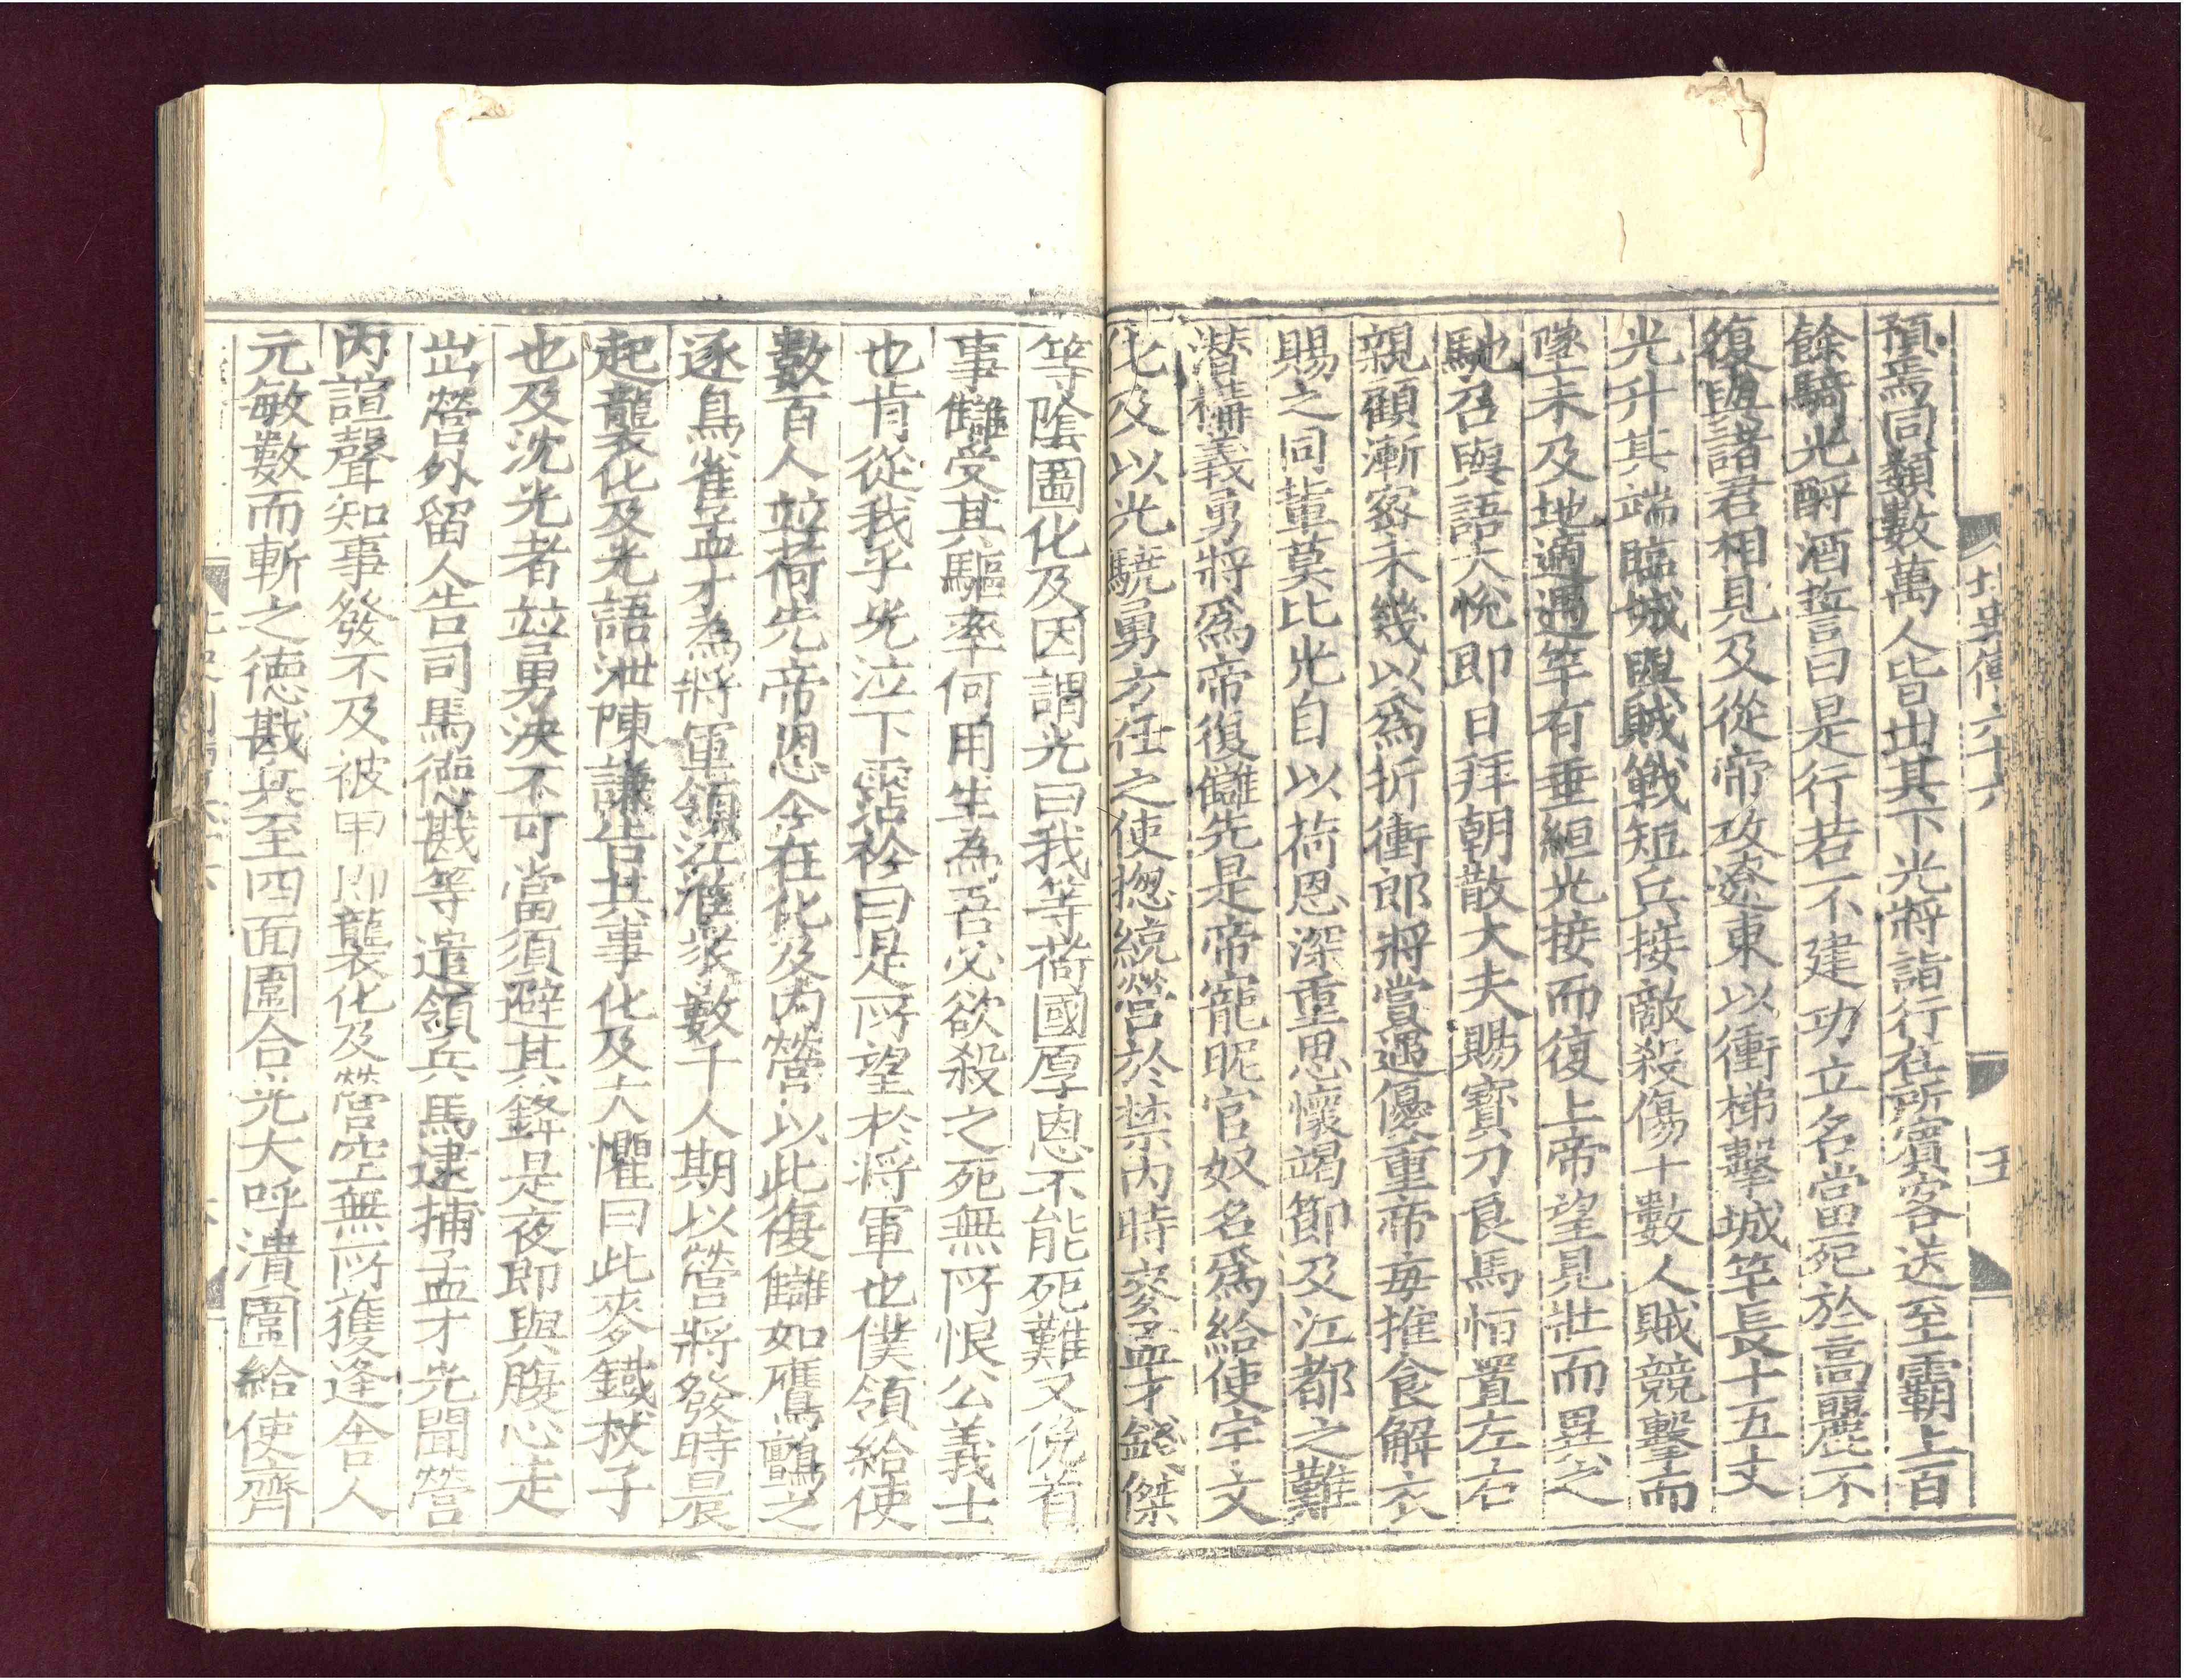 北史傳六十六
五
預焉同類數萬人皆出其下光將詣行在所賓客送至霸上百
餘騎光酹酒誓曰是行若不建功立名當死於高麗不
復與諸君相見及從帝攻遼東以衝梯擊城竿長十五丈
光升其端臨城與賊戰短兵接敵殺傷十數人賊競擊而
墜未及地適遇竿有垂絙光接而復上帝望見壯而異之
馳召與語大悅即日拜朝散大夫賜寶刀良馬恒置左右
親顧漸密未幾以爲折衝郎將賞遇優重帝每推食解衣
賜之同輩莫比光自以荷恩深重思懷竭節及江都之難
潜構義勇將爲帝復讎先是帝寵昵官奴名爲給使宇文
化及以光驍勇方任之使揔統營於禁内時麥孟才錢傑
等陰圖化及因謂光曰我等荷國厚恩不能死難又俛首
事讎受其驅率何用生為吾必欲殺之死無所恨公義士
也肯從我乎光泣下霑衿曰是所望於将軍也僕領給使
數百人並荷先帝恩今在化及内營以此復讎如鷹鸇之
逐鳥雀孟才為將軍領江淮衆數千人期以營將發時晨
起襲化及光語泄陳謙告其事化及大懼曰此麥鐵杖子
也及沈光者並勇决不可當須避其鋒是夜即與腹心走
出營外留人告司馬德戡等遣領兵馬逮捕孟才光聞營
内諠聲知事發不及被甲即襲化及營空無所獲逢舍人
元敏數而斬之德戡兵至四面圍合光大呼潰圍給使齊